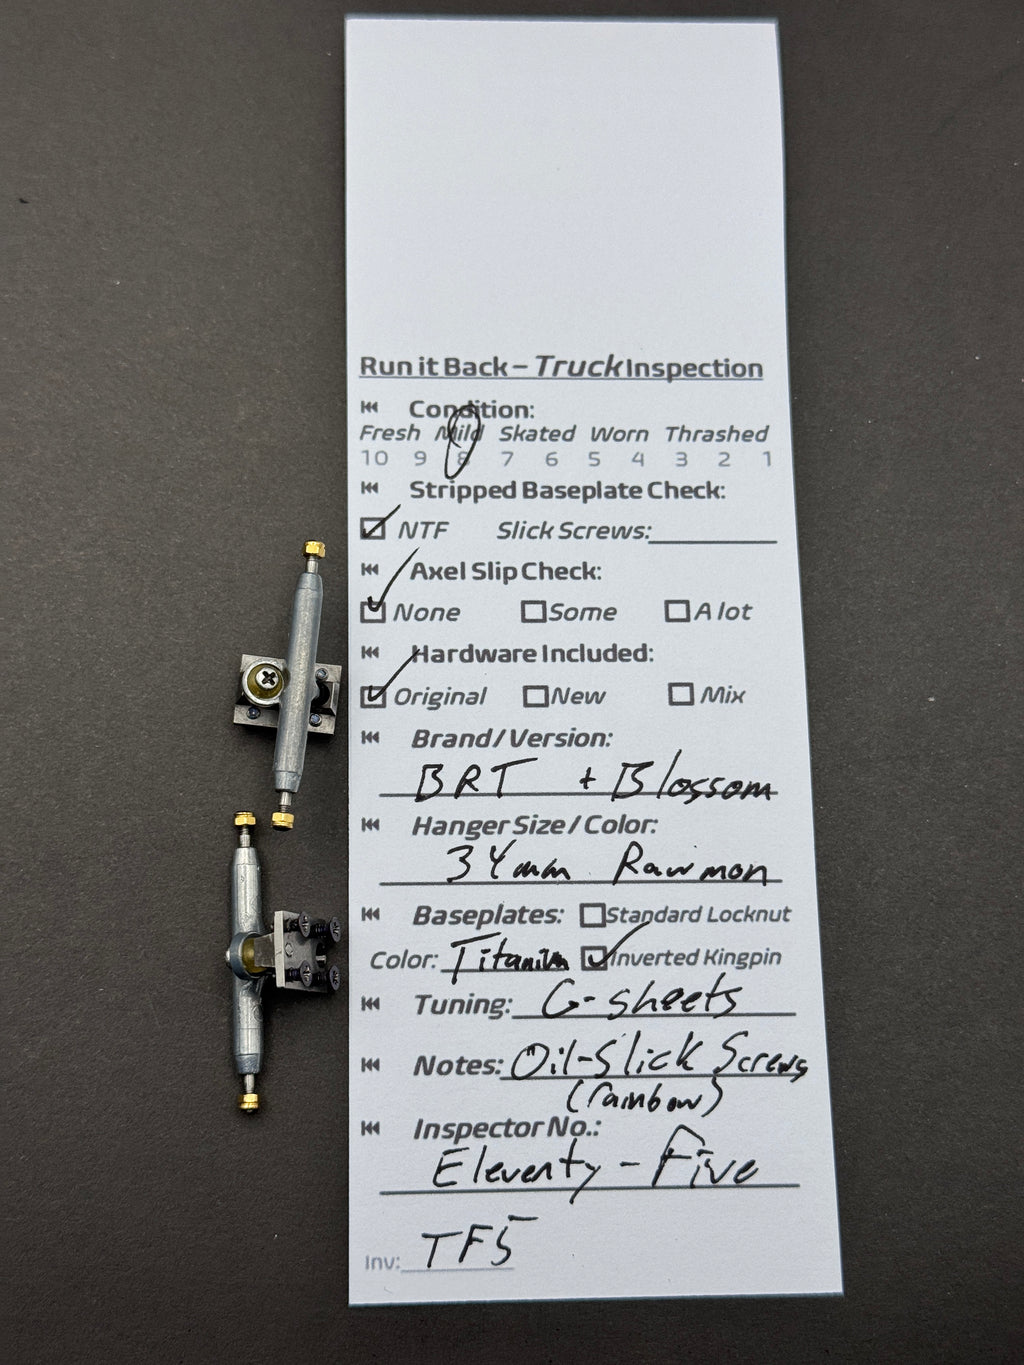 Run it Back – Truck Inspection
Condition:
Fresh Mild Skated Worn Thrashed
10 9 8 7 6 5 4 3 2 1
Stripped Baseplate Check:
NTF Slick Screws:
Axel Slip Check:
None Some A lot
Hardware Included:
Original New Mix
Brand/Version:
BRT + Blossom
Hanger Size/Color:
34mm Rawmon
Baseplates: Standard Locknut
Color: Titanium Inverted Kingpin
Tuning: G-sheets
Notes: Oil-Slick Screws
(rainbow)
Inspector No.:
Eleventy-Five
Inv: TF5